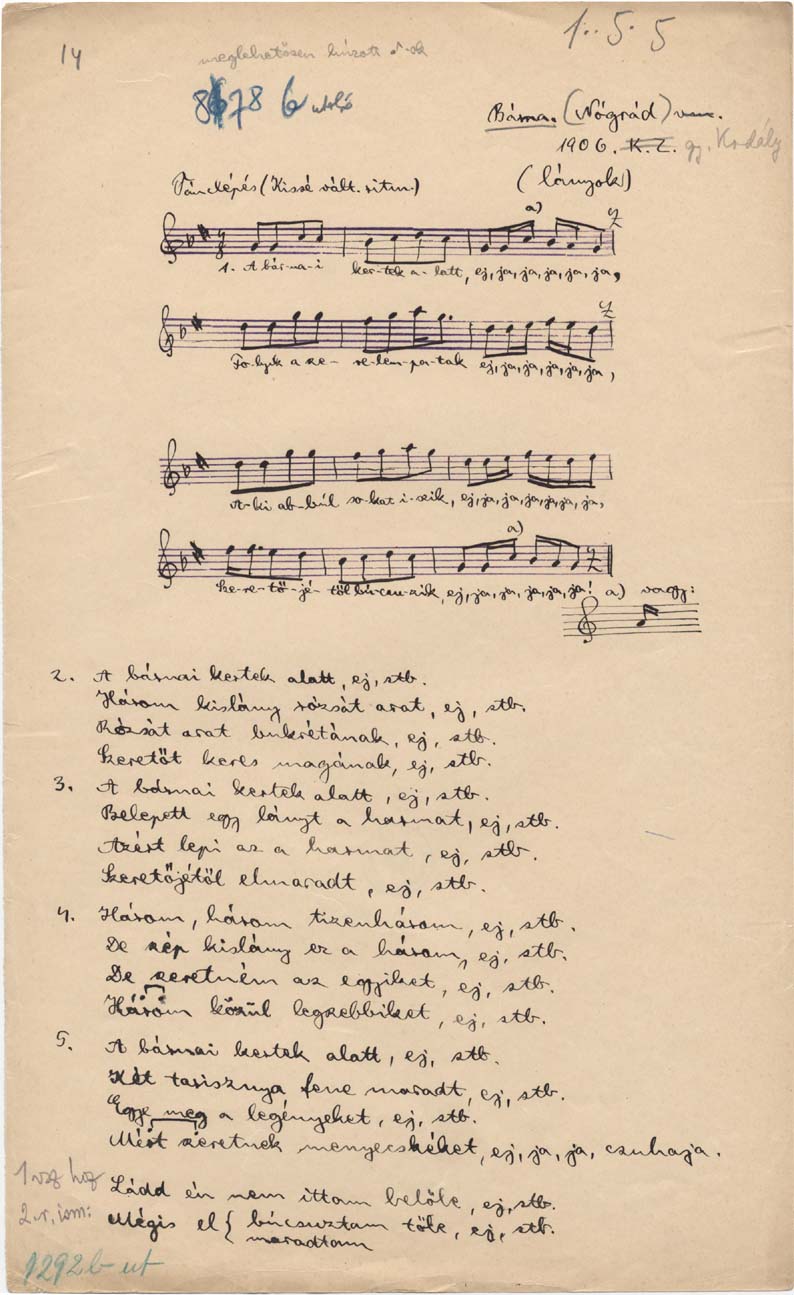 14
1. 5. 5
meglehetősen húzott ♪-ok
8678 b utolsó
Bárna. (Nógrád) vm.
1906. K. Z. gy. Kodály
Tánclépés (Kissé vált. ritm.)
(lányok)
a)
1. A bár-na-i ker-tek a-latt, ej, ja, ja, ja, ja, ja,
Fo-lyik a sze-re-lem-pa-tak ej, ja, ja, ja, ja, ja,
A-ki ab-búl so-kat i-szik, ej, ja, ja, ja, ja, ja, ja,
a)
Sze-re-tő-jé-től bú-csu-zik, ej, ja, ja, ja, ja, ja! a) vagy:
2. A bárnai kertek alatt, ej, stb.
Három kislány rózsát arat, ej, stb.
Rózsát arat bukrétának, ej, stb.
Szeretőt keres magának, ej, stb.
3. A bárnai kertek alatt, ej, stb.
Belepett egy lányt a harmat, ej, stb.
Azért lepi az a harmat, ej, stb.
Szeretőjétől elmaradt, ej, stb.
4. Három, három tizenhárom, ej, stb.
De szép kislány ez a három, ej, stb.
De szeretném az egyiket, ej, stb.
Három közül legszebbiket, ej, stb.
5. A bárnai kertek alatt, ej, stb.
Két tarisznya fene maradt, ej, stb.
Egye meg a legényeket, ej, stb.
Mért szeretnek menyecskéket, ej, ja, ja, czuhaja.
1 vsz hoz
Ládd én nem ittam belőle, ej, stb.
2. r. ism:
Mégis el { búcsuztam tőle, ej, stb.
maradtam
1292b-ut